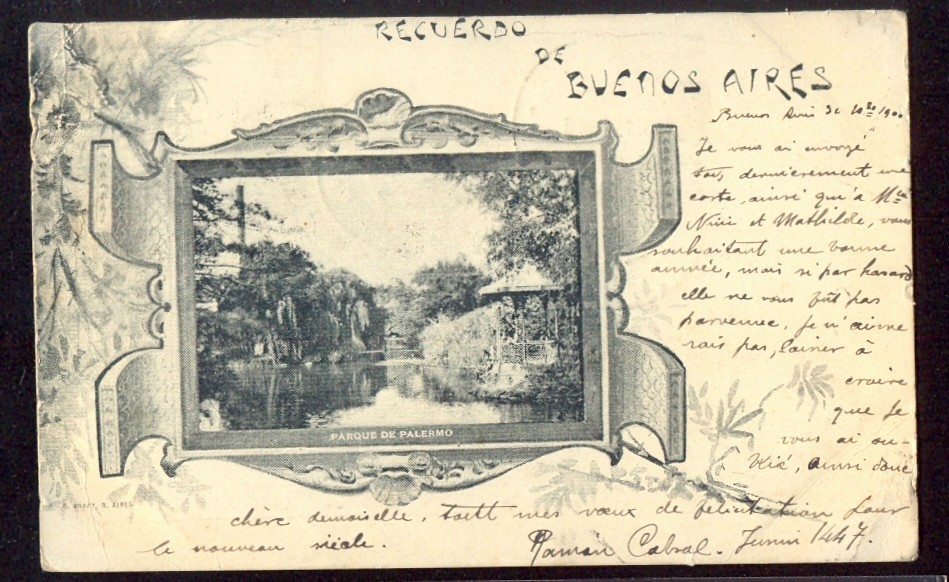 RECUERDO
DE
BUENOS AIRES
Buenos 1900
Je vous ai envoyé
tout dernièrement une
carte, ainsi qu'à Mlle
Nini et Mathilde, vous
souhaitant une bonne
année, mais si par hasard
elle ne vous fût pas
parvenue, je n'aime
rais pas, laisser à
croire
que je
vous ai ou-
blié, ainsi donc
PARQUE DE PALERMO
B. AIRES
chère demoiselle, mes vœux de félicitation pour
le nouveau siècle. Ramón Cabral. 1447.